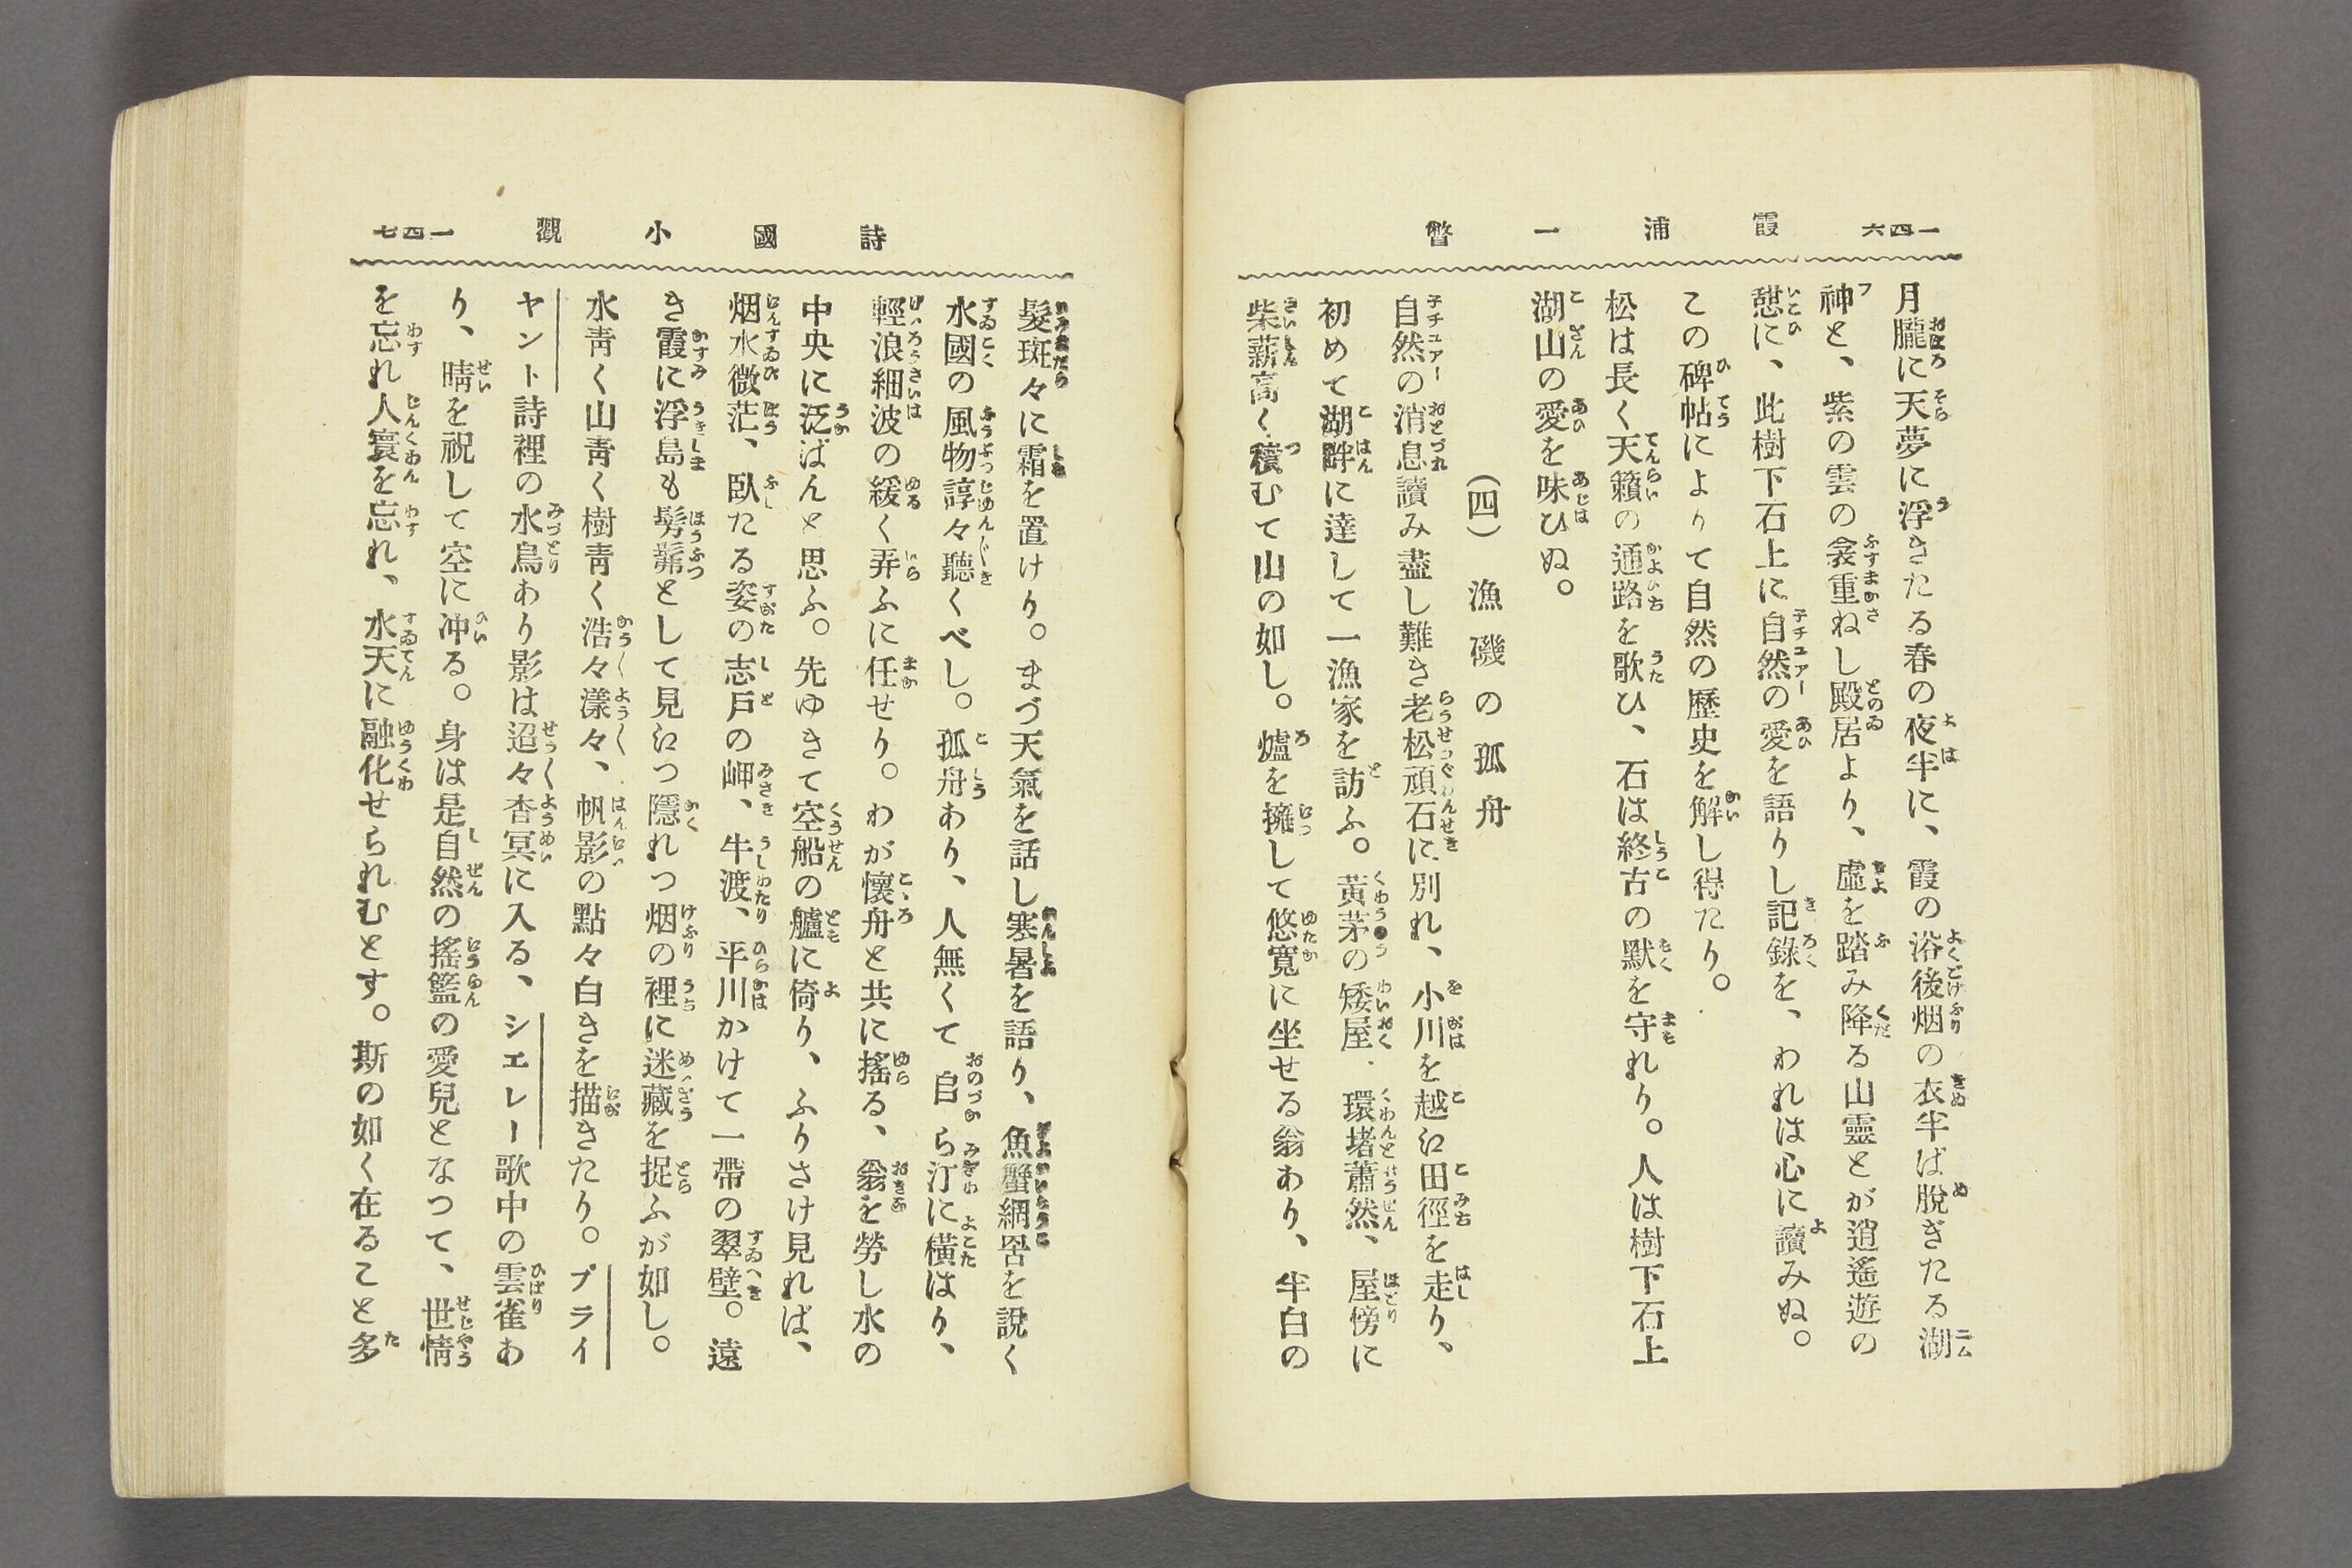 一四六
霞浦一瞥
月朧に天夢に浮きたる春の夜半に、霞の浴後烟の衣半ば脱ぎたる湖
神と、紫の雲の衾重ねし殿居より、虛を踏み降る山靈とが逍遙遊の
憇に、此樹下石上に自然の愛を語りし記錄を、われは心に讀みぬ。
この碑帖によりて自然の歷史を解し得たり。
松は長く天籟の通路を歌ひ、石は終古の默を守れり。人は樹下石上
湖山の愛を味ひぬ。
(四) 漁磯の孤舟
自然の消息讀み盡し難き老松頑石に別れ、小川を越江田徑を走り、
初めて湖畔に達して一漁家を訪ふ。黃茅の矮屋、環堵蕭然、屋傍に
柴薪高く積むて山の如し。爐を擁して悠寬に坐せる翁あり、半白の
詩國小觀
一四七
髮斑々に霜を置けり。まづ天氣を話し寒暑を語り、魚蟹網罟を說く
水國の風物諄々聽くべし。孤舟あり、人無くて自ら汀に橫はり、
輕浪細波の緩く弄ふに任せり。わが懷舟と共に搖る、翁を勞し水の
中央に泛ばんと思ふ。先ゆきて空船の艫に倚り、ふりさけ見れば、
烟水微茫、臥たる姿の志戶の岬、牛渡、平川かけて一帶の翠壁。遠
き霞に浮島も髣髴として見江つ隱れつ烟の裡に迷藏を捉ふが如し。
水靑く山靑く樹靑く浩々漾々、帆影の點々白きを描きたり。ブライ
ヤント詩裡の水鳥あり影は迢々杳冥に入る、シエレー歌中の雲雀あ
り、晴を祝して空に冲る。身は是自然の搖籃の愛兒となつて、世情
を忘れ人寰を忘れ、水天に融化せられむとす。斯の如く在ること多